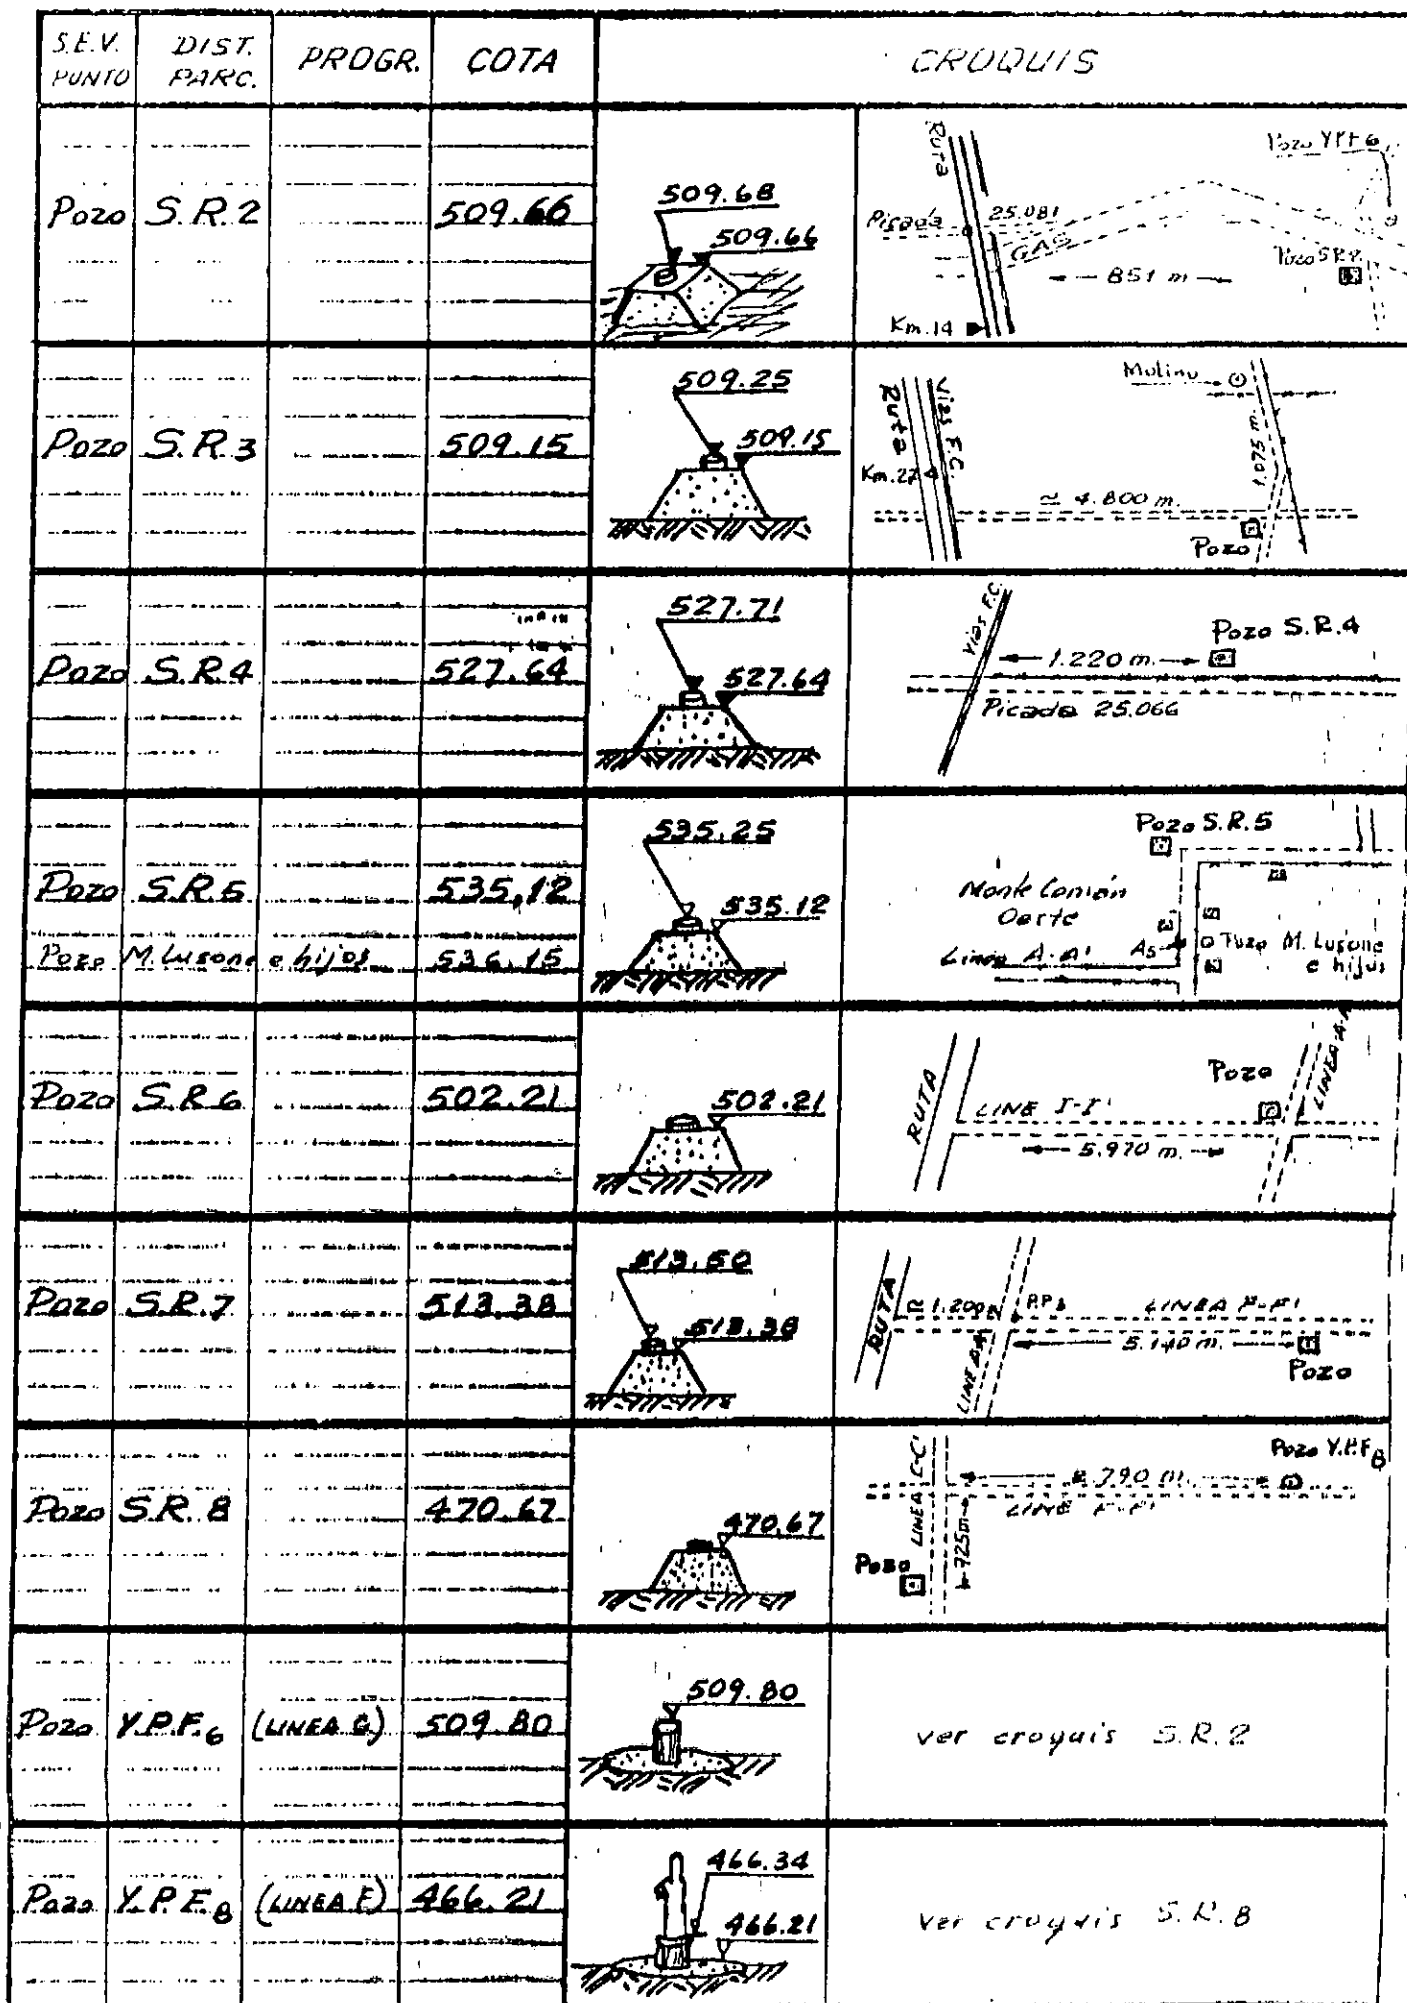 S.E.V. PUNTO DIST. PARC. PROGR. COTA CROQUIS
Pozo S.R.2 509.66
509.68
509.66
Ruta
Pozo YPF6
Picada 25.081
GAS
851 m
Pozo S.R.2
Km.14
Pozo S.R.3 509.15
509.25
509.15
Ruta
Vias F.C.
Molino
1.075 m.
≃ 4.800 m.
Pozo
Pozo S.R.4 527.64
527.71
527.64
Vias F.C.
Pozo S.R.4
1.220 m.
Picada 25.066
Pozo S.R.5 535,12
Pozo M. Lusone e hijos 536.15
535.25
535.12
Pozo S.R.5
Monte Comán
Oeste
Linea A-A' A5
Pozo M. Lusone
e hijos
Pozo S.R.6 502.21
502.21
RUTA
LINE I-I'
5.970 m.
Pozo
LINEA A-A
Pozo S.R.7 513.38
513.50
513.38
RUTA
1.200
LINEA F-F'
5.140 m.
Pozo
Pozo S.R.8 470.67
470.67
LINEA C-C'
Pozo Y.P.F8
790 m.
LINE F-F'
725m
Pozo
Pozo Y.P.F.6 (LINEA G) 509.80
509.80
ver croquis S.R.2
Pozo Y.P.F.8 (LINEA F) 466.21
466.34
466.21
ver croquis S.R.8